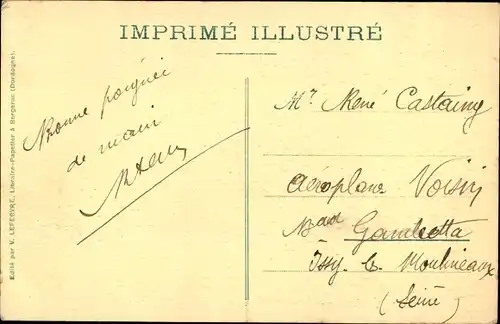 IMPRIMÉ ILLUSTRÉ
Edité par V. LEFEBVRE, Libraire-Papetier à Bergerac (Dordogne).
Bonne poignée
de main
Mr. René Castaing
Aéroplane Voisin
Bad Gambetta
Issy. L. Moulineaux
(Seine)